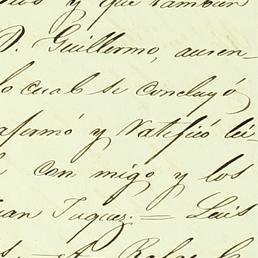 y que tambien
D. Guillermo, ausen-
lo cual se concluyó
afirmó y ratificó lei-
con migo y los
Juan Tuquez.= Luis